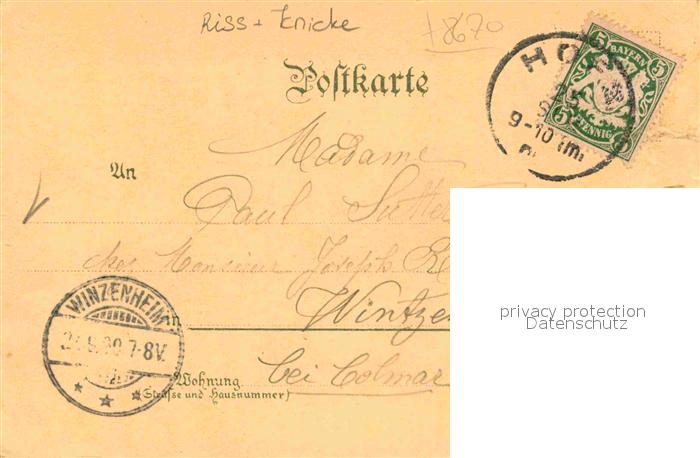 Riss + Knicke
+8670
Postkarte
HOF
5 BAYERN 5
5 PFENNIG 5
25
9-10 Vm.
Madame
An
Paul Sutter
chez Monsieur Joseph
WINZENHEIM
in Wintzen
7-8V.
Wohnung bei Colmar
(Straße und Hausnummer)
privacy protection
Datenschutz